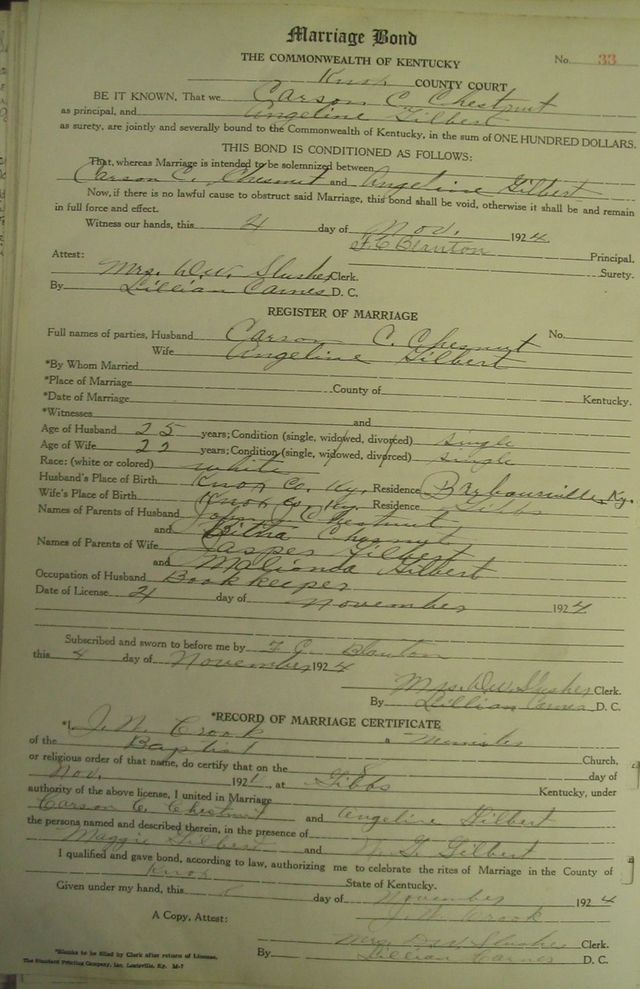 Marriage Bond
THE COMMONWEALTH OF KENTUCKY
No. 33
Knox COUNTY COURT
BE IT KNOWN, That we Carson C. Chestnut
as principal, and Angeline Gilbert
as surety, are jointly and severally bound to the Commonwealth of Kentucky, in the sum of ONE HUNDRED DOLLARS.
THIS BOND IS CONDITIONED AS FOLLOWS:
That, whereas Marriage is intended to be solemnized between
Carson C. Chesnut and Angeline Gilbert
Now, if there is no lawful cause to obstruct said Marriage, this bond shall be void, otherwise it shall be and remain
in full force and effect.
Witness our hands, this 4 day of Nov. 1924
F. C. Blanton Principal.
Attest: Surety.
Mrs. D.W. Slusher Clerk.
By Lillian Carnes D. C.
REGISTER OF MARRIAGE
Full names of parties, Husband Carson C. Chesnut No.
Wife Angeline Gilbert
*By Whom Married
*Place of Marriage County of Kentucky.
*Date of Marriage
*Witnesses and
Age of Husband 25 years; Condition (single, widowed, divorced) single
Age of Wife 22 years; Condition (single, widowed, divorced) single
Race: (white or colored) white
Husband's Place of Birth Knox Co. Ky. Residence Barbourville, Ky.
Wife's Place of Birth Knox Co. Ky. Residence Gibbs
Names of Parents of Husband John Chestnut
and Chesnut
Names of Parents of Wife Jasper Gilbert
and Malinda Gilbert
Occupation of Husband Bookkeeper
Date of License 4 day of November 1924
Subscribed and sworn to before me by F. C. Blanton
this 4 day of November, 1924
Mrs. D.W. Slusher Clerk.
By Lillian Carnes D. C.
*RECORD OF MARRIAGE CERTIFICATE
*I, J. N. Crook a Minister
of the Baptist Church,
or religious order of that name, do certify that on the 8 day of
Nov. 192 , at Gibbs Kentucky, under
authority of the above license, I united in Marriage
Carson C. Chestnut and Angeline Gilbert
the persons named and described therein, in the presence of
Maggie Gilbert and Gilbert
I qualified and gave bond, according to law, authorizing me to celebrate the rites of Marriage in the County of
Knox State of Kentucky.
Given under my hand, this day of November 1924
J. N. Crook
A Copy, Attest:
Mrs. D.W. Slusher Clerk.
By Lillian Carnes D. C.
*Blanks to be filled by Clerk after return of License.
The Standard Printing Company, Inc. Louisville, Ky. M-7